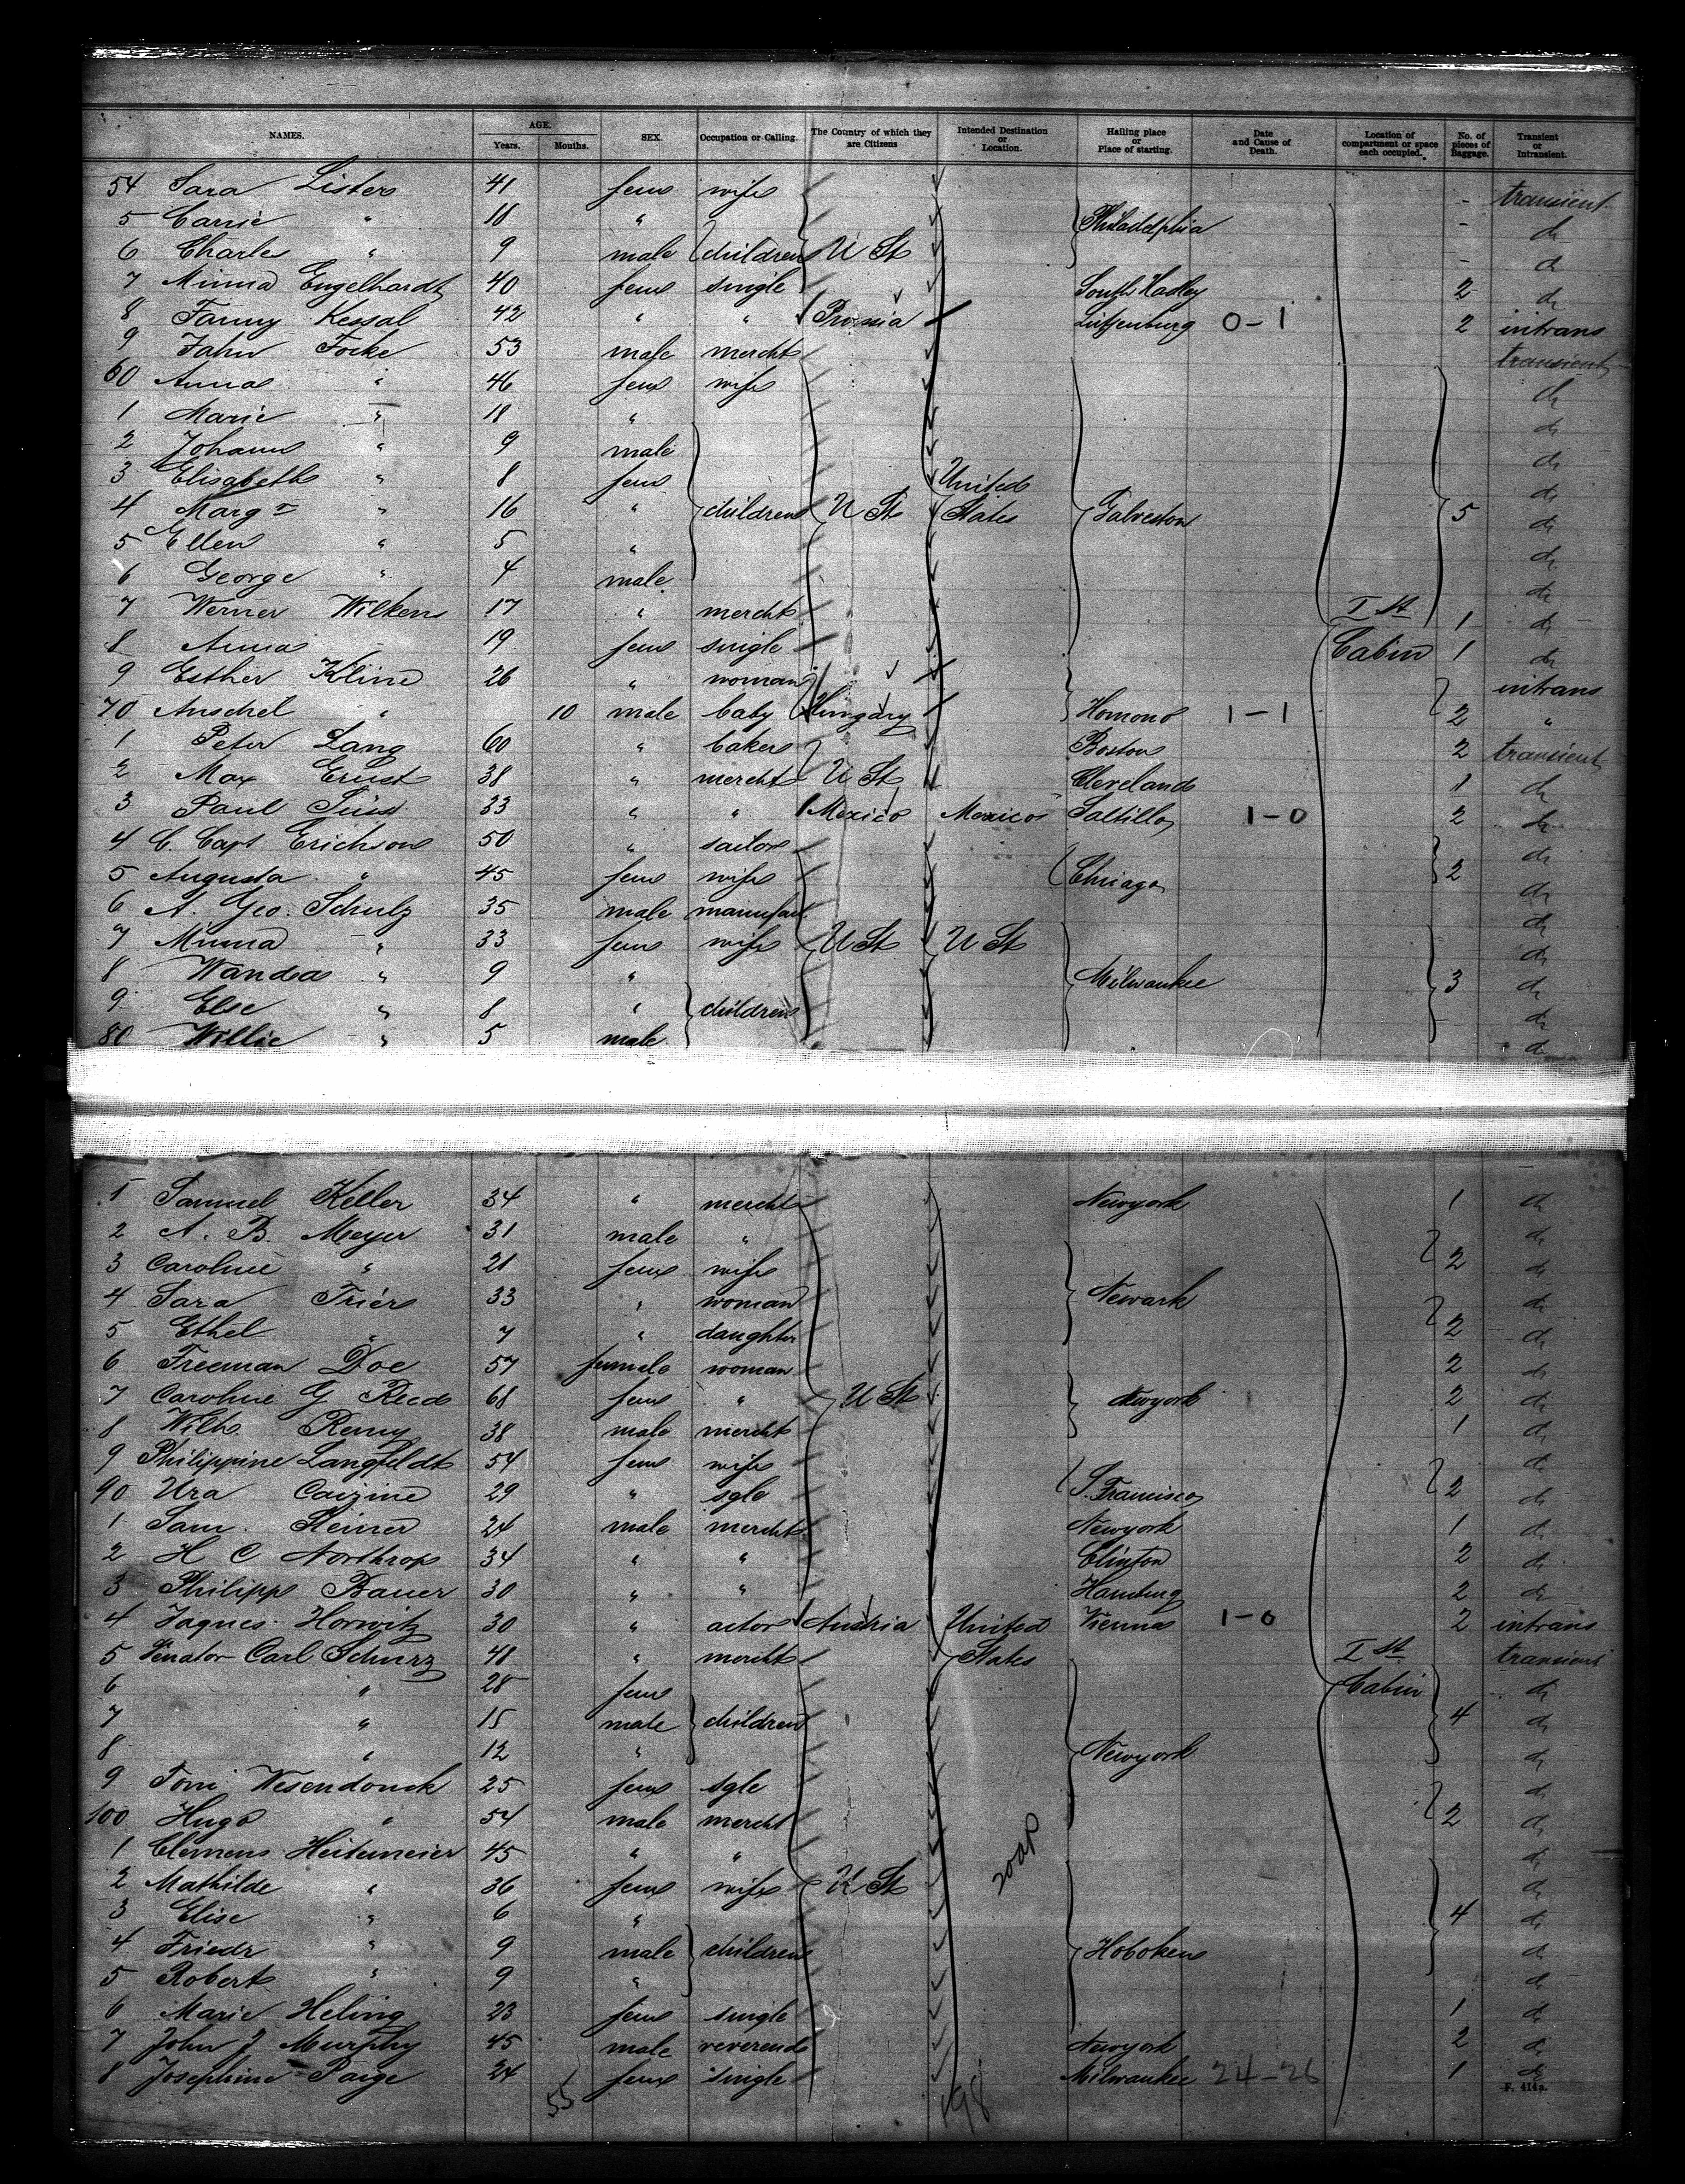 NAMES. AGE. Years. Months. SEX. Occupation or Calling. The Country of which they are Citizens Intended Destination or Location. Hailing place or Place of starting. Date and Cause of Death. Location of compartment or space each occupied. No. of pieces of Baggage. Transient or Intransient.
54 Sara Lister 41 fem wife - transient
5 Carrie " 18 " Philadelphia - do
6 Charles " 9 male children U St - do
7 Minna Engelhardt 40 fem single South Hadley 2 do
8 Fanny Kessal 42 " " Prussia Lutzenburg 0-1 2 intrans
9 John Focke 53 male mercht transient
60 Anna " 46 fem wife do
1 Marie " 18 " do
2 Johann " 9 male do
3 Elisabeth " 8 fem United do
4 Margr " 16 " children U St States Galveston 5 do
5 Ellen " 5 " do
6 George " 4 male do
7 Werner Wilkens 17 " mercht Ist 1 do
8 Anna - 19 fem single Cabin 1 do
9 Esther Kline 26 " woman intrans
70 Anschel " 10 male baby Hungary Homono 1-1 2 "
1 Peter Lang 60 " baker Boston 2 transient
2 Max Ernst 38 " mercht U St Cleveland 1 do
3 Paul Süss 33 " " Mexico Mexico Saltillo 1-0 2 do
4 C. Capt Erichson 50 " sailor do
5 Augusta " 45 fem wife Chicago 2 do
6 A. Geo. Schulz 35 male manufact do
7 Minna " 33 fem wife U St U St do
8 Wanda " 9 " Milwaukee 3 do
9 Else " 8 " children do
80 Willie " 5 male do
1 Samuel Keller 34 " mercht Newyork 1 do
2 A. B. Meyer 31 male " do
3 Caroline " 21 fem wife 2 do
4 Sara Trier 33 " woman Newark do
5 Ethel " 7 " daughter 2 do
6 Freeman Doe 57 female woman 2 do
7 Caroline G Reed 68 fem " U St Newyork 2 do
8 Wilh. Remy 38 male mercht 1 do
9 Philippine Langfeldt 54 fem wife do
90 Ura 29 " sgle S. Francisco 2 do
1 Sam. Steiner 24 male mercht Newyork 1 do
2 H C Northrop 34 " " Clinton 2 do
3 Philipp Bauer 30 " " Hamburg 2 do
4 Jaques Horwitz 30 " actor Austria United Vienna 1-0 2 intrans
5 Senator Carl Schurz 48 " mercht States Ist transient
6 " 28 fem Cabin do
7 " 15 male children 4 do
8 " 12 " Newyork do
9 Toni Wesendonck 25 fem sgle do
100 Hugo " 54 male mercht 2 do
1 Clemens Heitemeier 45 " " do
2 Mathilde " 36 fem wife U St do
3 Elise " 6 " 4 do
4 Friedr " 9 male children Hoboken do
5 Robert " 9 " do
6 Marie Heling 23 fem single 1 do
7 John J Murphy 45 male reverend Newyork 2 do
8 Josephine Paige 24 fem single Milwaukee 24-26 1 do
55 198 F. 414a.